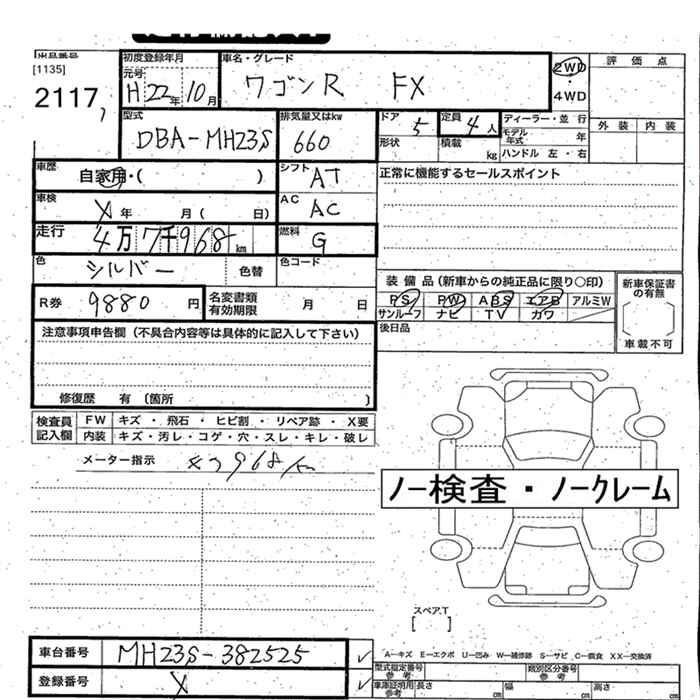 出品番号
[1135]
2117
初度登録年月
元号
H 22年 10月
車名・グレード
ワゴンR FX
2WD
・
4WD
評 価 点
外 装 内 装
型式
DBA-MH23S
排気量又はkw
660
ドア 5
定員 4人
ディーラー・並 行
モデル年式 年
形状
積載 kg
ハンドル 左・右
車歴
自家用・( )
シフト AT
正常に機能するセールスポイント
車検
X 年 月( 日)
AC AC
走行
4万 7千968 km
燃料 G
色
シルバー
色替
色コード
装 備 品 (新車からの純正品に限り○印)
PS PW ABS エアB アルミW
サンルーフ ナビ TV カワ
新車保証書の有無
車載不可
R券 9880 円
名変書類有効期限 月 日
後日品
注意事項申告欄(不具合内容等は具体的に記入して下さい)
修復歴 有 (箇所 )
検査員記入欄
FW キズ ・ 飛石 ・ ヒビ割 ・ リペア跡 ・ X要
内装 キズ・汚レ・コゲ・穴・スレ・キレ・破レ
メーター指示
ノー検査・ノークレーム
スペア.T
[ ]
車台番号 MH23S-382525
登録番号 X
A―キズ E―エクボ U―凹み W―補修跡 S―サビ C―腐食 XX―交換済
型式指定番号
参 考
類別区分番号
参 考
車庫証明用
参考
長さ cm
幅 cm
高さ cm